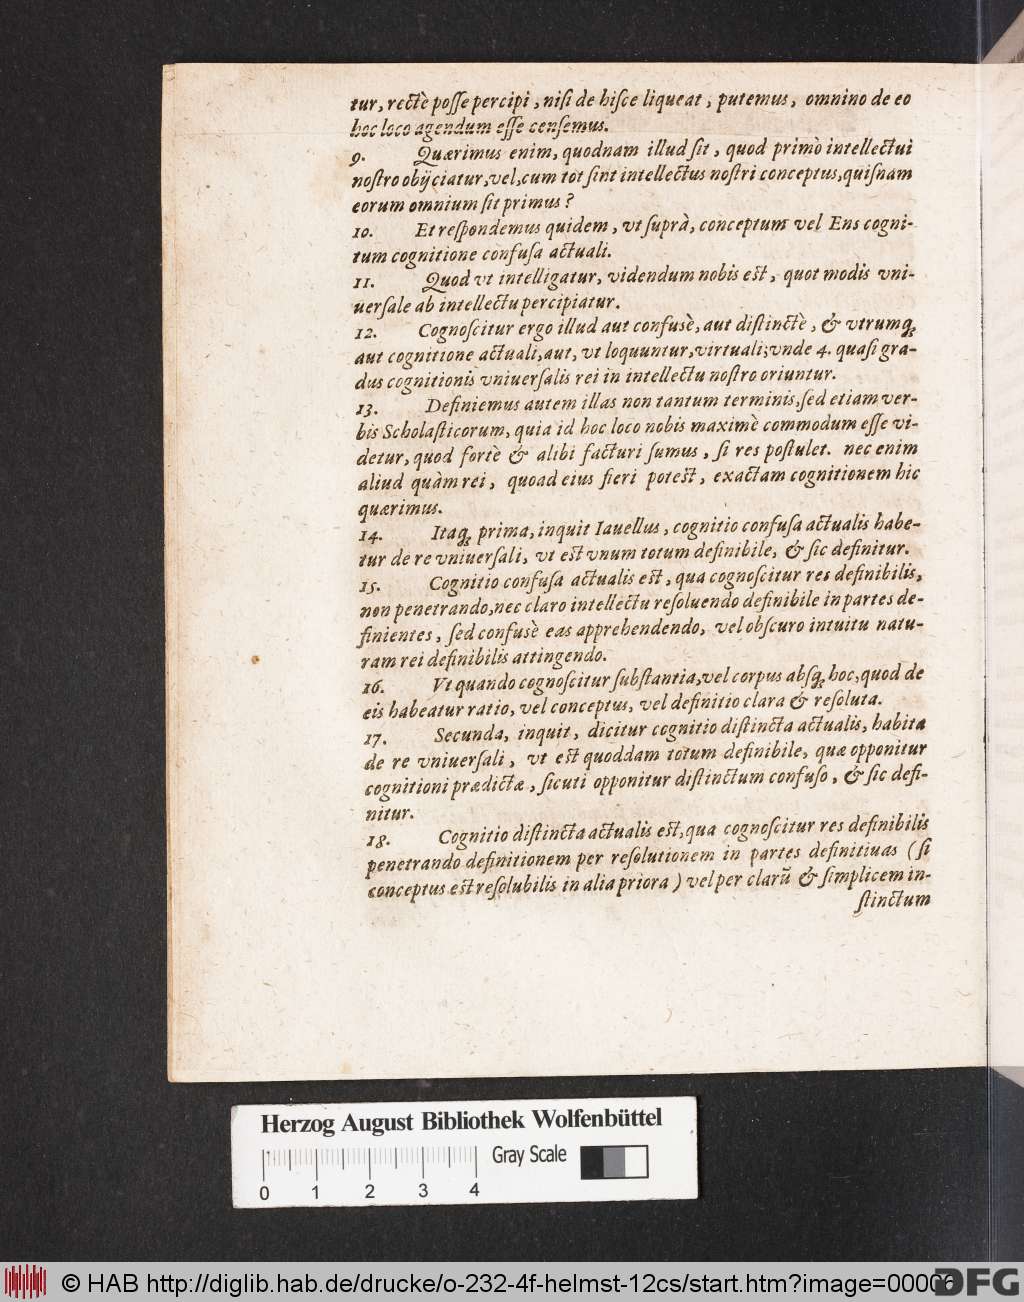 tur, rectè posse percipi, nisi de hisce liqueat, putemus, omnino de eo
hoc loco agendum esse censemus.
9. Quærimus enim, quodnam illud sit, quod primò intellectui
nostro obijciatur, vel, cum tot sint intellectus nostri conceptus, quisnam
eorum omnium sit primus?
10. Et respondemus quidem, vt suprà, conceptum vel Ens cogni-
tum cognitione confusa actuali.
11. Quod vt intelligatur, videndum nobis est, quot modis vni-
uersale ab intellectu percipiatur.
12. Cognoscitur ergo illud aut confusè, aut distinctè, & vtrumq;
aut cognitione actuali, aut, vt loquuntur, virtuali; vnde 4. quasi gra-
dus cognitionis vniuersalis rei in intellectu nostro oriuntur.
13. Definiemus autem illas non tantum terminis, sed etiam ver-
bis Scholasticorum, quia id hoc loco nobis maximè commodum esse vi-
detur, quod fortè & alibi facturi sumus, si res postulet. nec enim
aliud quàm rei, quoad eius fieri potest, exactam cognitionem hic
quærimus.
14. Itaq; prima, inquit Iauellus, cognitio confusa actualis habe-
tur de re vniuersali, vt est vnum totum definibile, & sic definitur.
15. Cognitio confusa actualis est, qua cognoscitur res definibilis,
non penetrando, nec claro intellectu resoluendo definibile in partes de-
finientes, sed confusè eas apprehendendo, vel obscuro intuitu natu-
ram rei definibilis attingendo.
16. Vt quando cognoscitur substantia, vel corpus absq; hoc, quod de
eis habeatur ratio, vel conceptus, vel definitio clara & resoluta.
17. Secunda, inquit, dicitur cognitio distincta actualis, habita
de re vniuersali, vt est quoddam totum definibile, quæ opponitur
cognitioni prædictæ, sicuti opponitur distinctum confuso, & sic defi-
nitur.
18. Cognitio distincta actualis est, qua cognoscitur res definibilis
penetrando definitionem per resolutionem in partes definitiuas (si
conceptus est resolubilis in alia priora) vel per clarũ & simplicem in-
stinctum
Herzog August Bibliothek Wolfenbüttel
Gray Scale
0 1 2 3 4
© HAB http://diglib.hab.de/drucke/o-232-4f-helmst-12cs/start.htm?image=00006
DFG